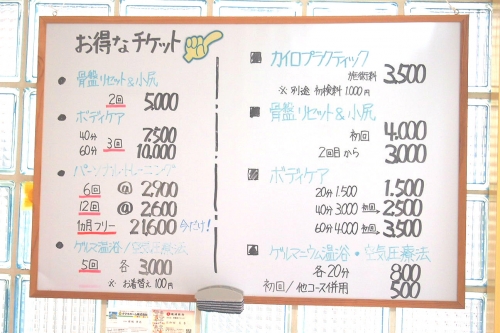 お得なチケット
骨盤リセット&小尻
2回 5,000
ボディケア
40分 7,500
60分 3回 10,000
パーソナル・トレーニング
6回 @ 2,900
12回 @ 2,600
1ヵ月フリー 21,600 今だけ!
ゲルマ温浴/空気圧療法
5回 各 3,000
※ お着替え 100円
カイロプラクティック
施術料 3,500
※ 別途 初検料 1,000円
骨盤リセット&小尻
初回 4,000
2回目から 3,000
ボディケア
20分 1.500 1.500
40分 3.000 初回→ 2500
60分 4.000 初回→ 3.500
ゲルマニウム温浴・空気圧療法
各20分 800
初回/他コース併用 500